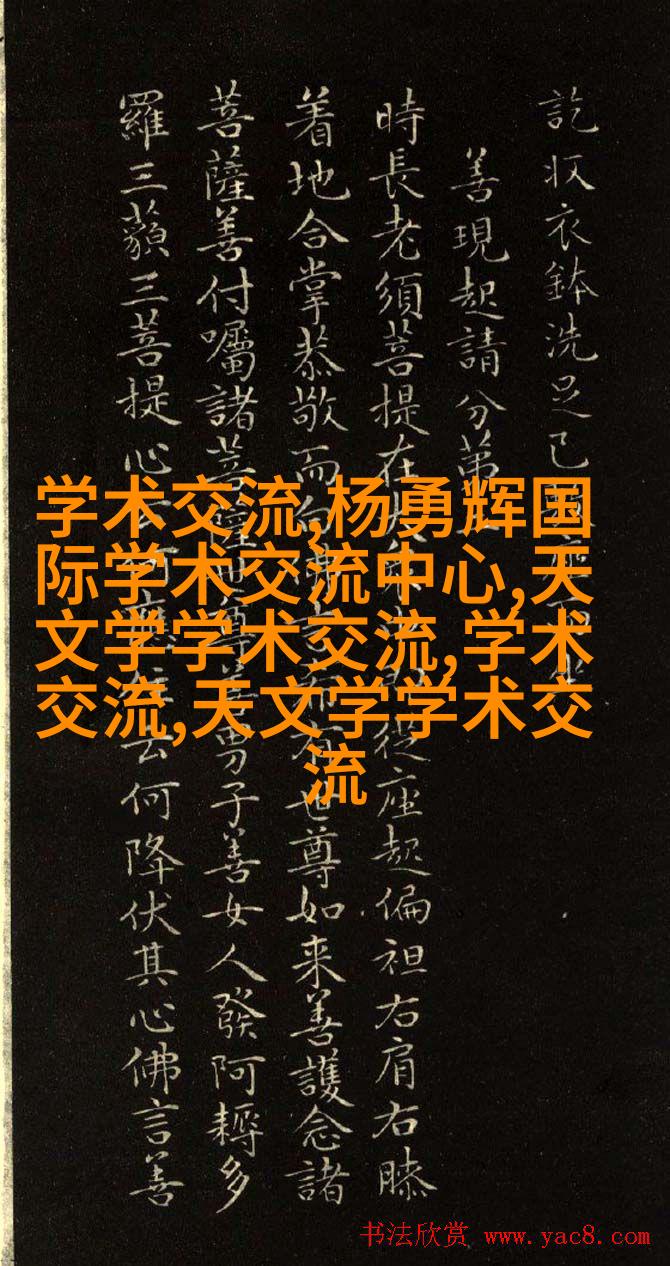 訖収衣鉢洗足已
善現起請分第
時長老須菩提在從座起偏袒右肩右膝
着地合掌恭敬而白言希有世尊如来善護念諸
菩薩善付囑諸菩男子善女人發阿耨多
羅三藐三菩提心云何降伏其心佛言善
学术交流,杨勇辉国
际学术交流中心,天
文学学术交流,学术
交流,天文学学术交
流
书法欣赏 www.yac8.com